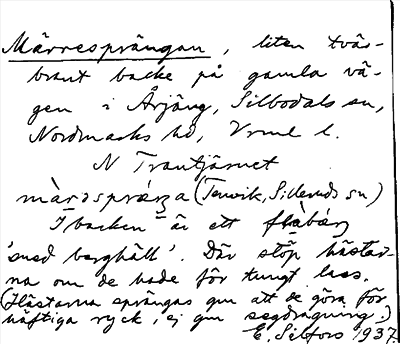 Märresprängan, liten tvär-
brant backe på gamla vä-
gen i Årjäng, Silbodals sn,
Nordmarks hd, Vrml l.
N Trantjärnet
(Tenvik, Sillerud sn)
I backen är ett flàbárʒ
'sned berghäll'. Där stöp hästar-
na om de hade för tungt lass.
(Hästarna sprängas gm att de göra för
häftiga ryck, ej gm segdragning.)
E. Selfors 1937.